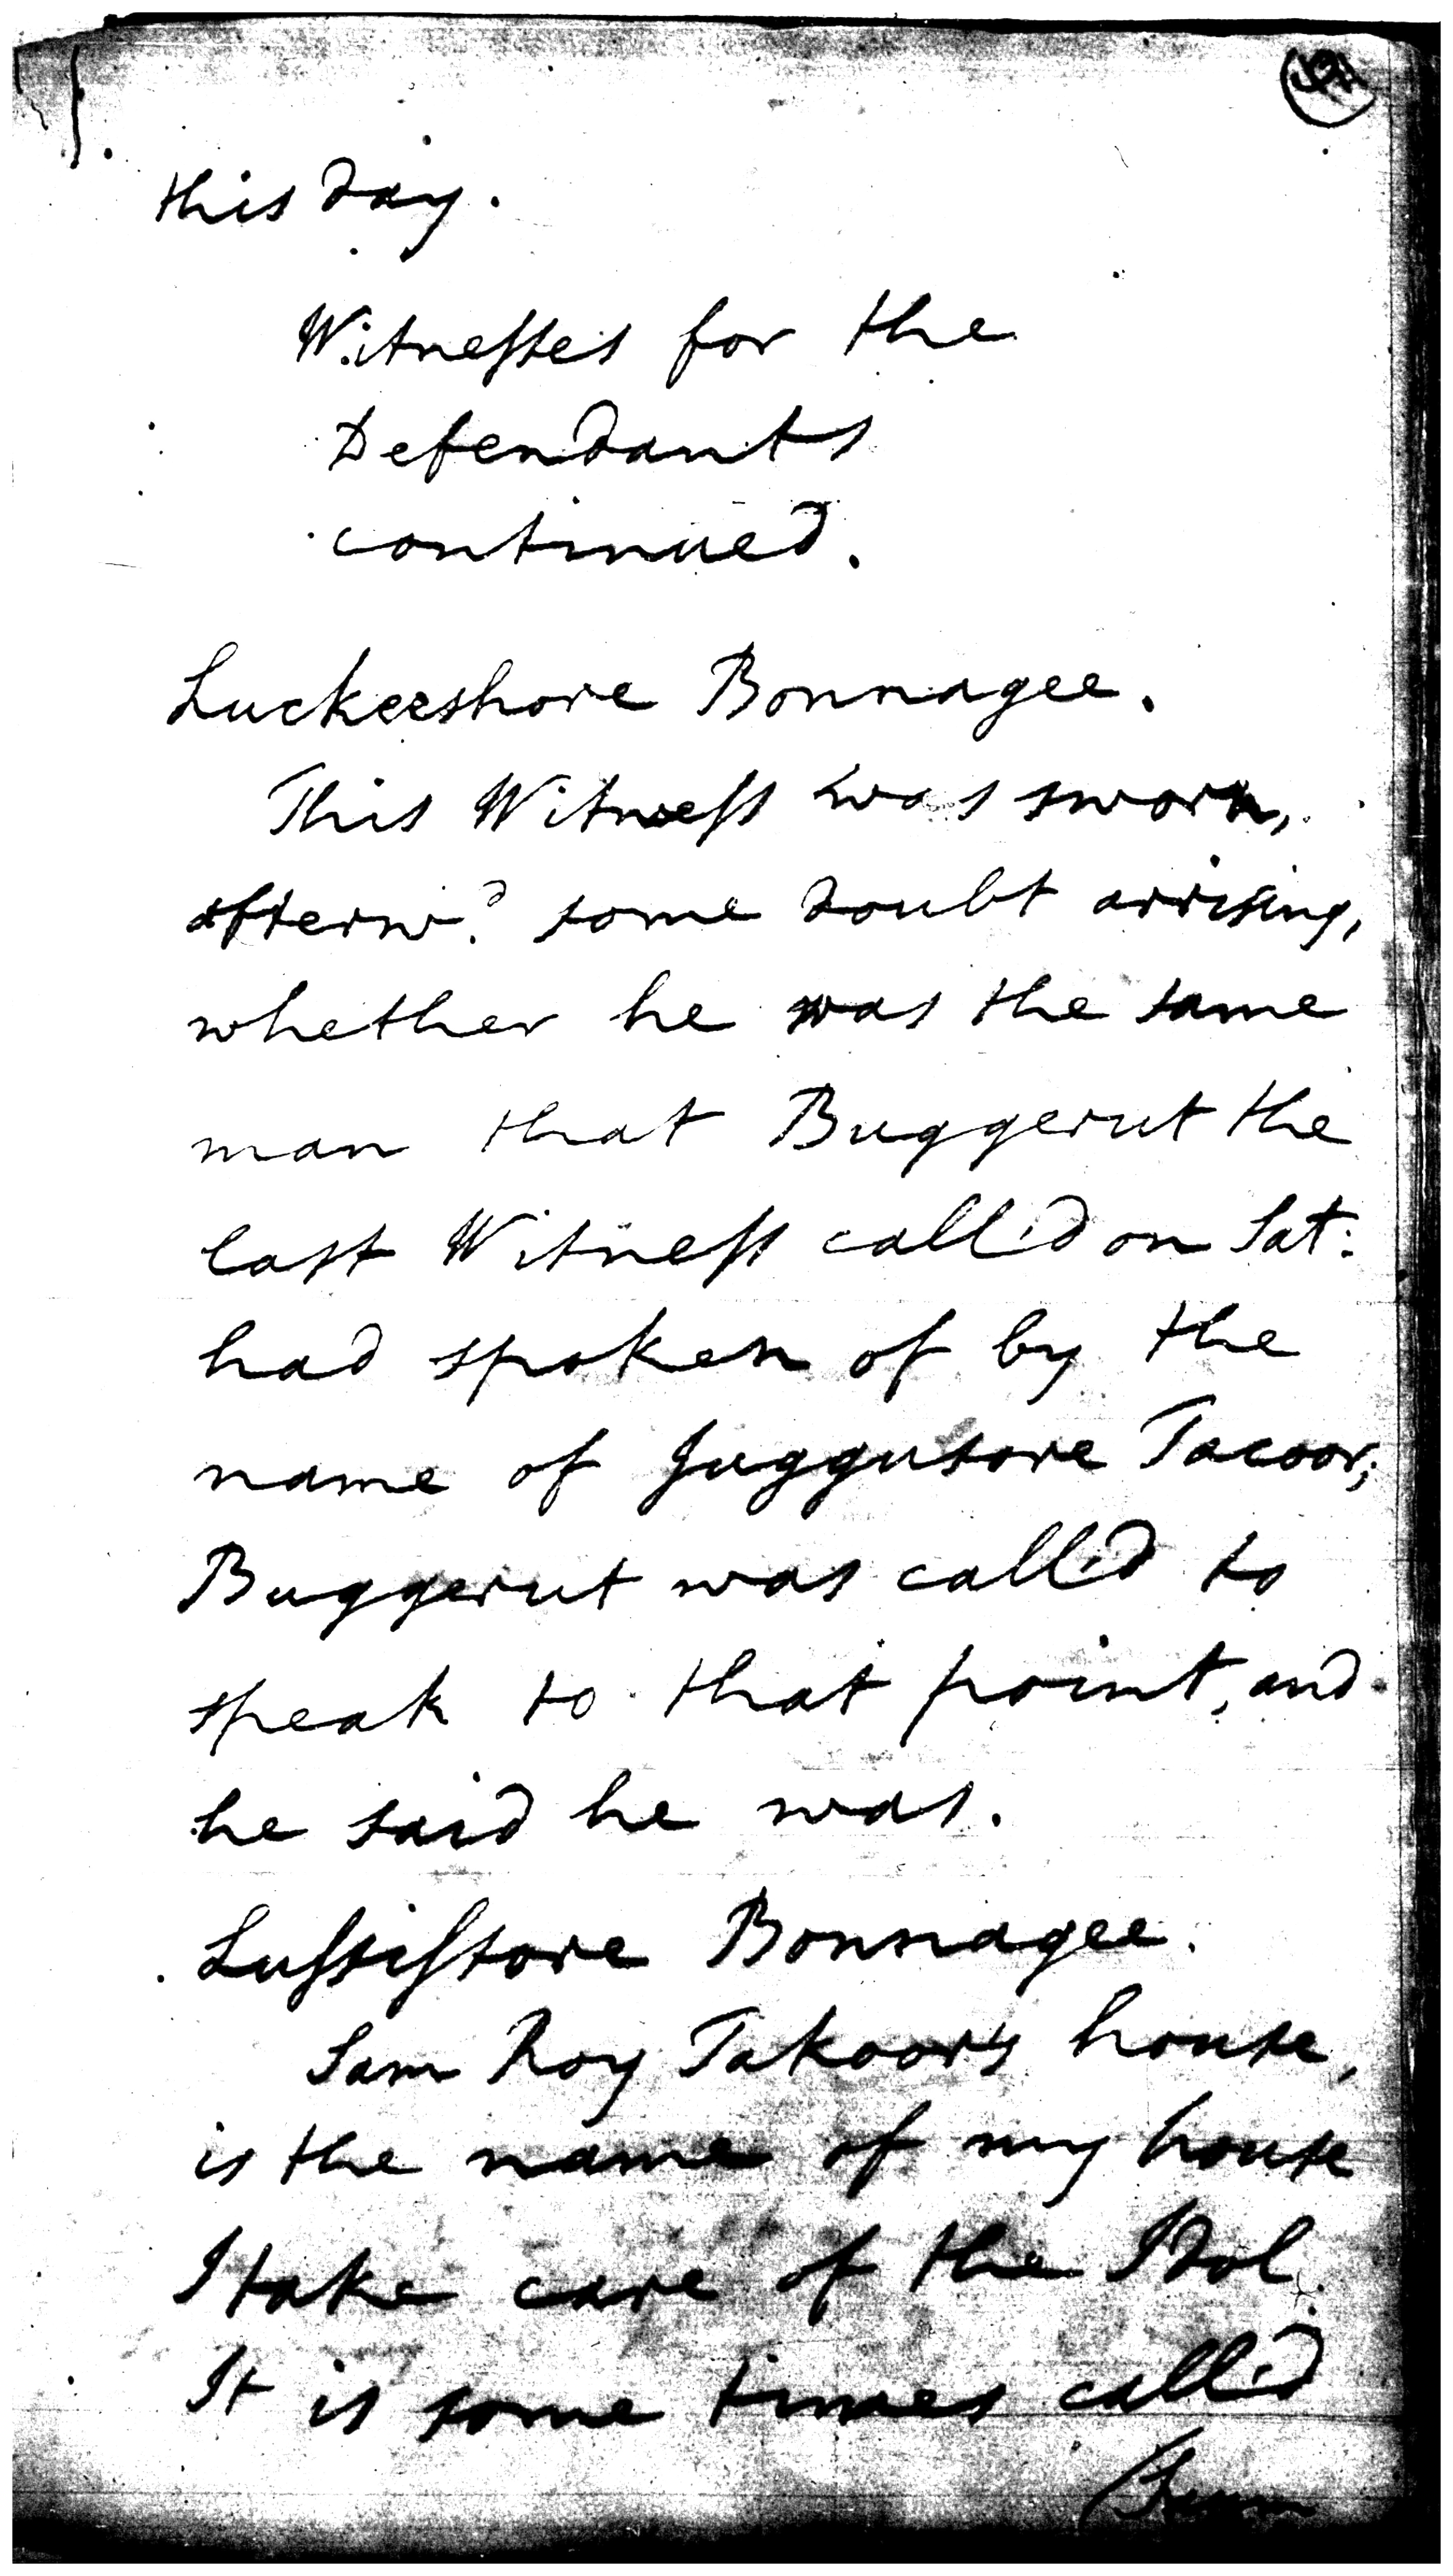 this day.
Witnesses for the
Defendants
continued.
Luckeeshore Bonnagee.
This Witness was sworn,
afterwd. some doubt arrising,
whether he was the same
man that Buggerut the
last Witness call'd on Sat:
had spoken of by the
name of Juggutsore Tacoor;
Buggerut was call'd to
speak to that point, and
he said he was.
Lussissore Bonnagee.
Sam Roy Takoor's house,
is the name of my house
I take care of the Idol.
It is some times call'd